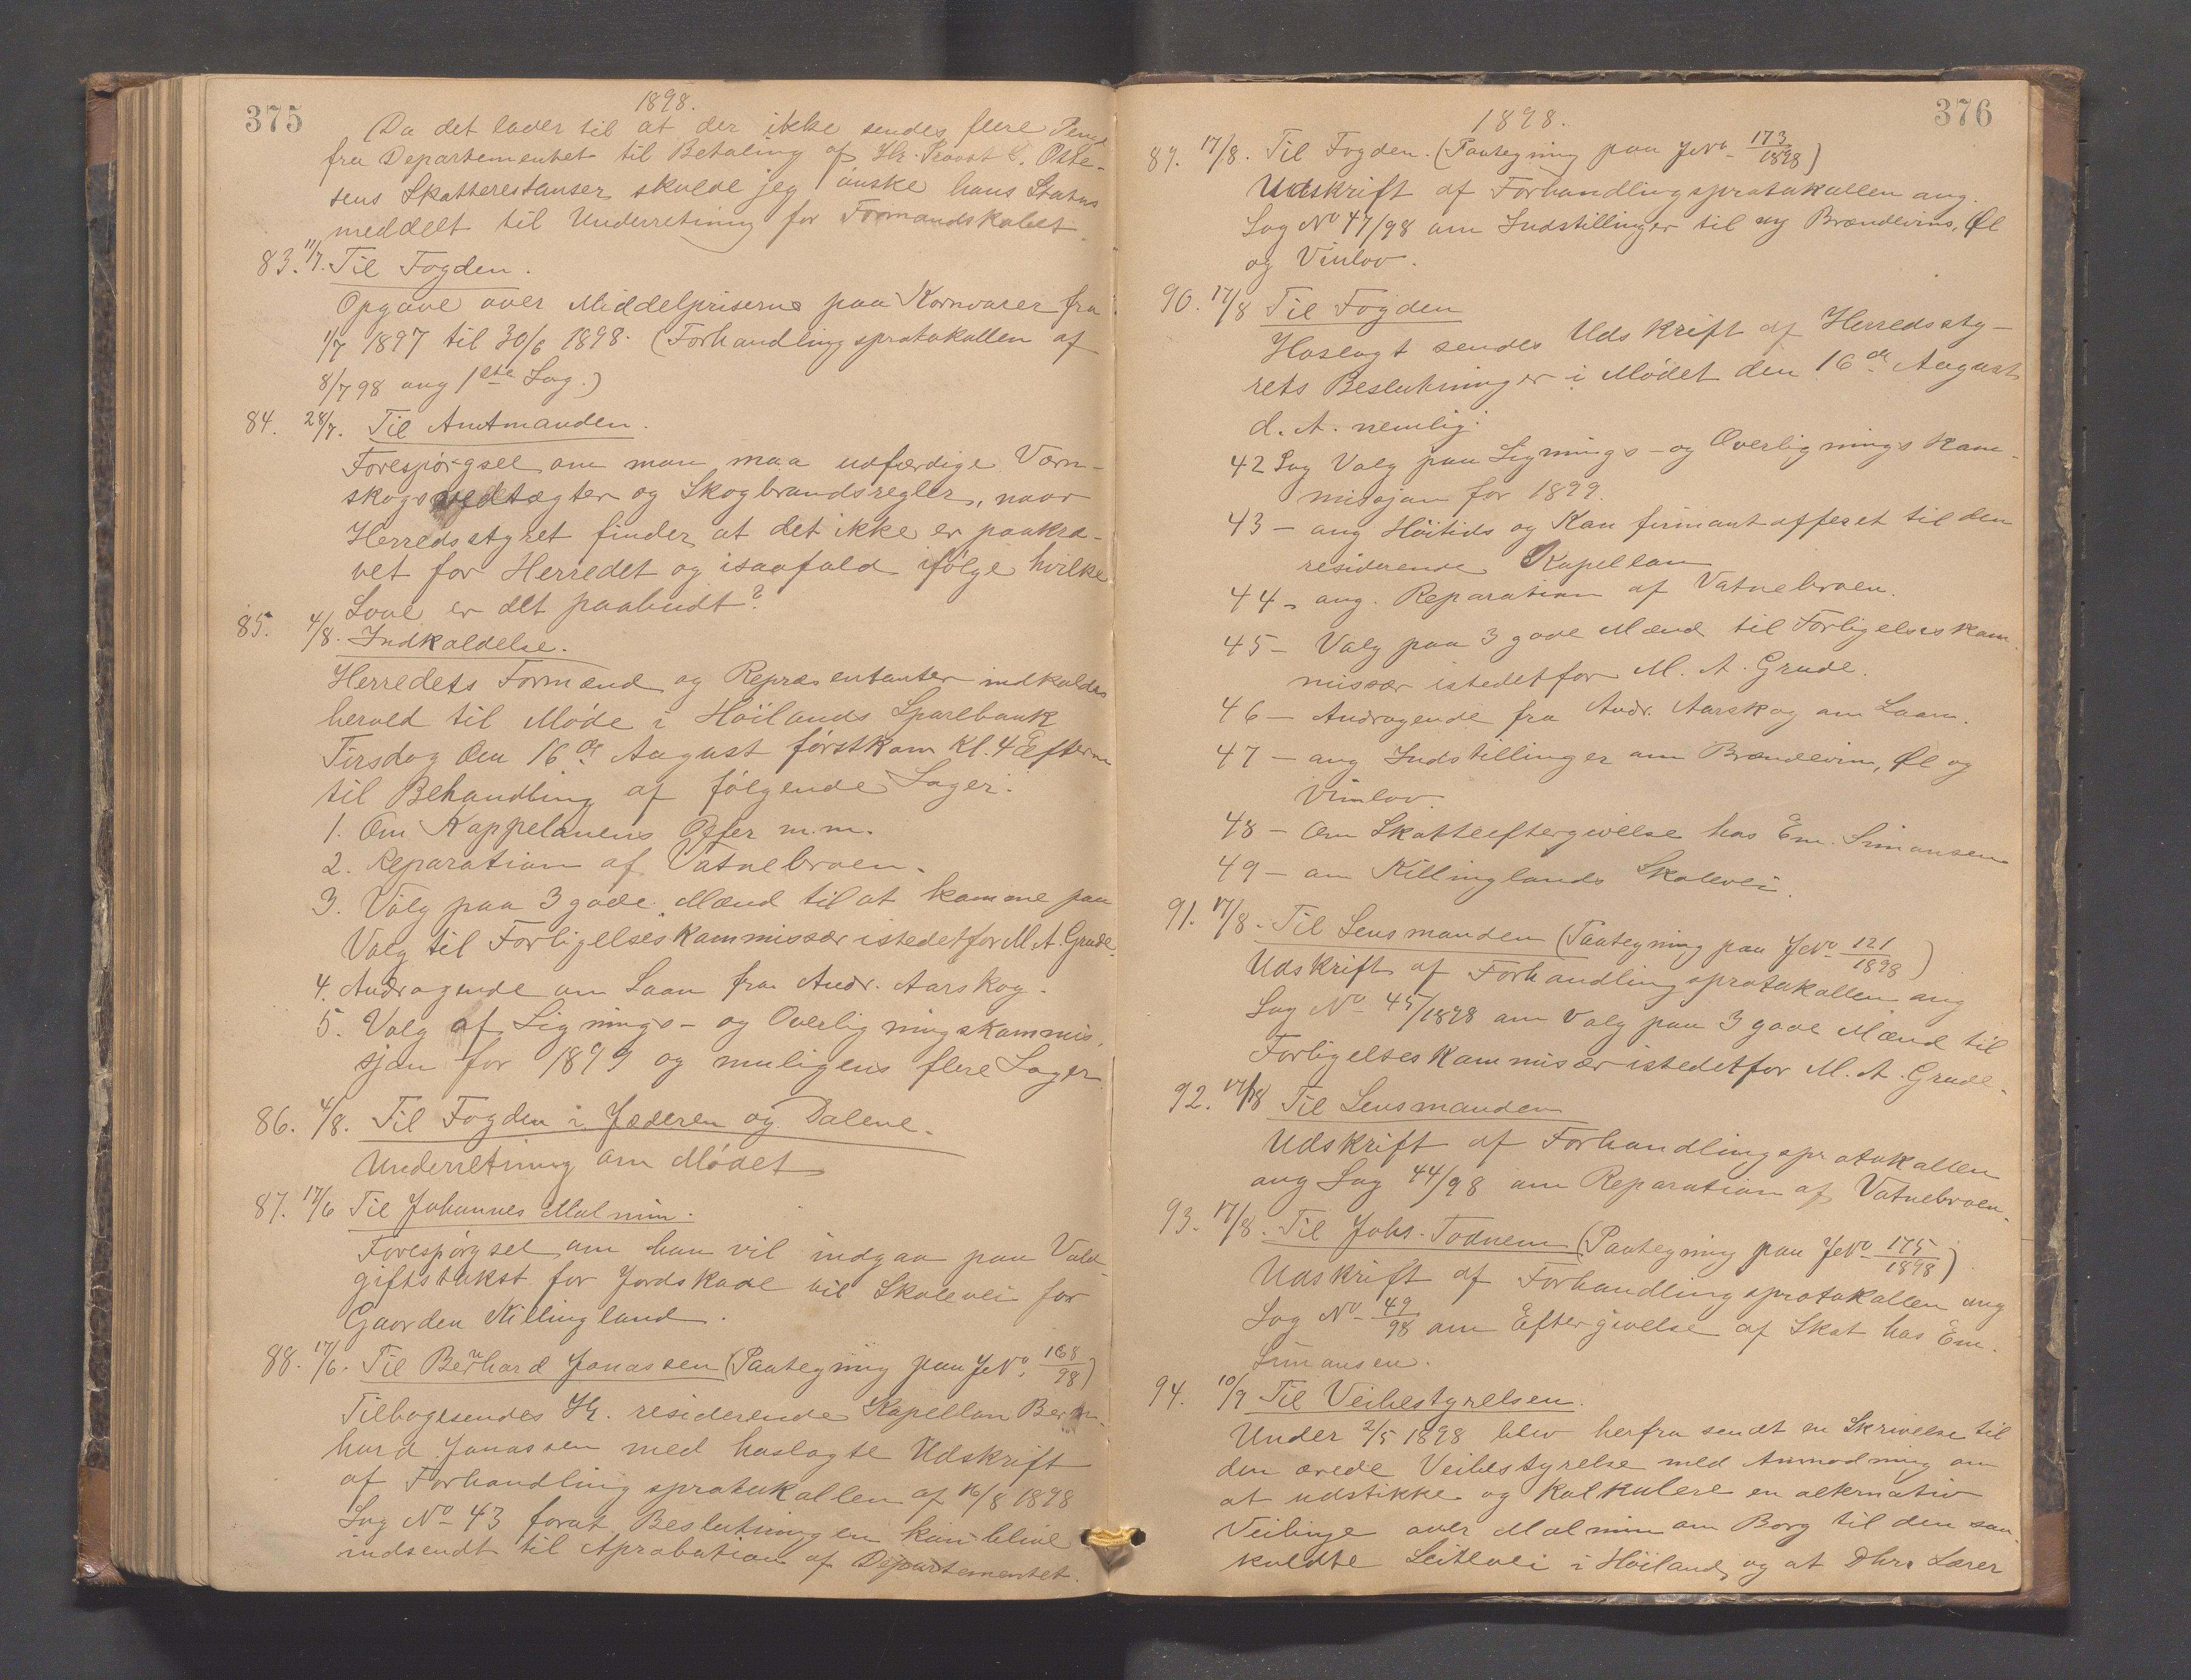 375
1898.
Da det lader til at der ikke sendes flere Penge
fra Departementet til Betaling af Hr. Provst Oste-
sens Skatterestanser skulde jeg ønske hans Status
meddelt til Underretning for Formandskabet.
83. 11/7. Til Fogden.
Opgave over Middelpriserne paa Kornvarer fra
1/7 1897 til 30/6 1898. (Forhandlingsprotokollen af
8/7 98 ang 1ste Sag.)
84. 28/7. Til Amtmanden.
Forespørgsel om man maa udfærdige Værn-
skogsvedtægter og Skogbrandsregler, naar
Herredsstyret finder at det ikke er paakra-
vet for Herredet og isaafald ifølge hvilke
Love er det paabudt?
85. 4/8. Indkaldelse.
Herredets Formænd og Repræsentanter indkaldes
herved til Møde i Høilands Sparebank
Tirsdag den 16de August førstkom Kl. 4 Efterm
til Behandling af følgende Sager:
1. Om Kappelanens Offer m.m.
2. Reparation af Vatnebroen.
3. Valg paa 3 gode Mænd til at komme paa
Valg til Forligelseskommissær istedetfor M. A. Grude.
4. Andragende om Laan fra Andr. Aarskog.
5. Valg af Lignings- og Overligningskommis-
sjon for 1899 og muligens flere Sager.
86. 4/8. Til Fogden i Jæderen og Dalene.
Underretning om Mødet
87. 17/6 Til Johannes Malmin.
Forespørgsel om han vil indgaa paa Vold-
giftstakst for Jordskade vil Skolevei for
Gaarden Killingland.
88. 17/6. Til Bernhard Jonassen (Paategning paa JNo. 168/98)
Tilbagesendes Hr. residerende Kapellan Bern-
hard Jonassen med hoslagte Udskrift
af Forhandlingsprotokollen af 16/8 1898
Sag No 43 forat Beslutningen kan blive
indsendt til Aprobation af Departementet.
376
1898.
89. 17/8. Til Fogden. (Paategning paa JNo 173/1898)
Udskrift af Forhandlingsprotokollen ang.
Sag No 47/98 om Indstillinger til ny Brændevins, Øl
og Vinlov.
90. 17/8 Til Fogden
Hoslagt sendes Udskrift af Herredssty-
rets Beslutninger i Mødet den 16de August
d. A. nemlig:
42 Sag Valg paa Lignings- og Overlignings Kom-
missjon for 1899.
43 — ang Høitids og Konfirmantofferet til den
residerende Kapellan
44 - ang. Reparation af Vatnebroen.
45 — Valg paa 3 gode Mænd til Forligelseskom
missær istedetfor M. A. Grude.
46 — Andragende fra Andr. Aarskog om Laan.
47 — ang Indstillinger om Brændevin, Øl og
Vinlov.
48 — Om Skatteeftergivelse hos Em. Simonsen
49 — om Killinglands Skolevei.
91. 17/8. Til Lensmanden (Paategning paa JNo 121/1898)
Udskrift af Forhandlingsprotokollen ang
Sag No 45/1898 om Valg paa 3 gode Mænd til
Forligelseskommisær istedetfor M. A. Grude.
92. 17/8 Til Lensmanden
Udskrift af Forhandlingsprotokollen
ang Sag 44/98 om Reparation af Vatnebroen.
93. 17/8. Til Johs. Todnem (Paategning paa JNo 175/1898)
Udskrift af Forhandlingsprotokollen ang
Sag No 49/98 om Eftergivelse af Skat hos Em.
Simonsen.
94. 10/9 Til Veibestyrelsen.
Under 2/5 1898 blev herfra sendt en Skrivelse til
den ærede Veibestyrelse med Anmodning om
at udstikke og Kalkulere en alternativ
Veilinje over Malmin om Borg til den saa-
kaldte i Høiland, og at Dhrr Lærer